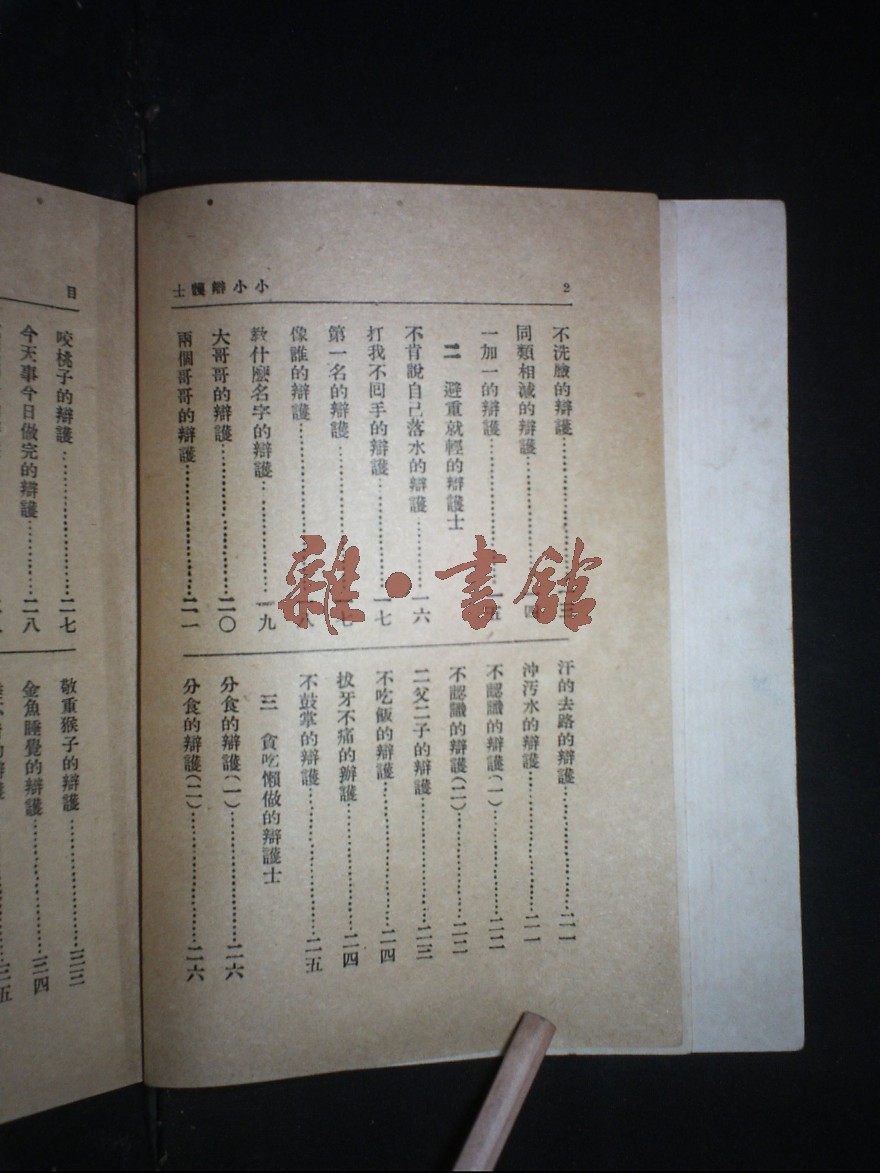 2
小小辯護士
不洗臉的辯護……三
同類相減的辯護……四
一加一的辯護……一五
二 避重就輕的辯護士
不肯說自己落水的辯護……一六
打我不囘手的辯護……一七
第一名的辯護……一七
像誰的辯護……一八
教什麼名字的辯護……一九
大哥哥的辯護……二〇
兩個哥哥的辯護……二一
汗的去路的辯護……二一
沖汚水的辯護……二一
不認識的辯護(一)……二二
不認識的辯護(二)……二二
二父二子的辯護……二三
不吃飯的辯護……二四
拔牙不痛的辦護……二四
不鼓掌的辯護……二五
三 貪吃懶做的辯護士
分食的辯護(一)……二六
分食的辯護(二)……二六
目
咬桃子的辯護……二七
今天事今日做完的辯護……二八
敬重猴子的辯護……三三
金魚睡覺的辯護……三四
三五
雜·書館